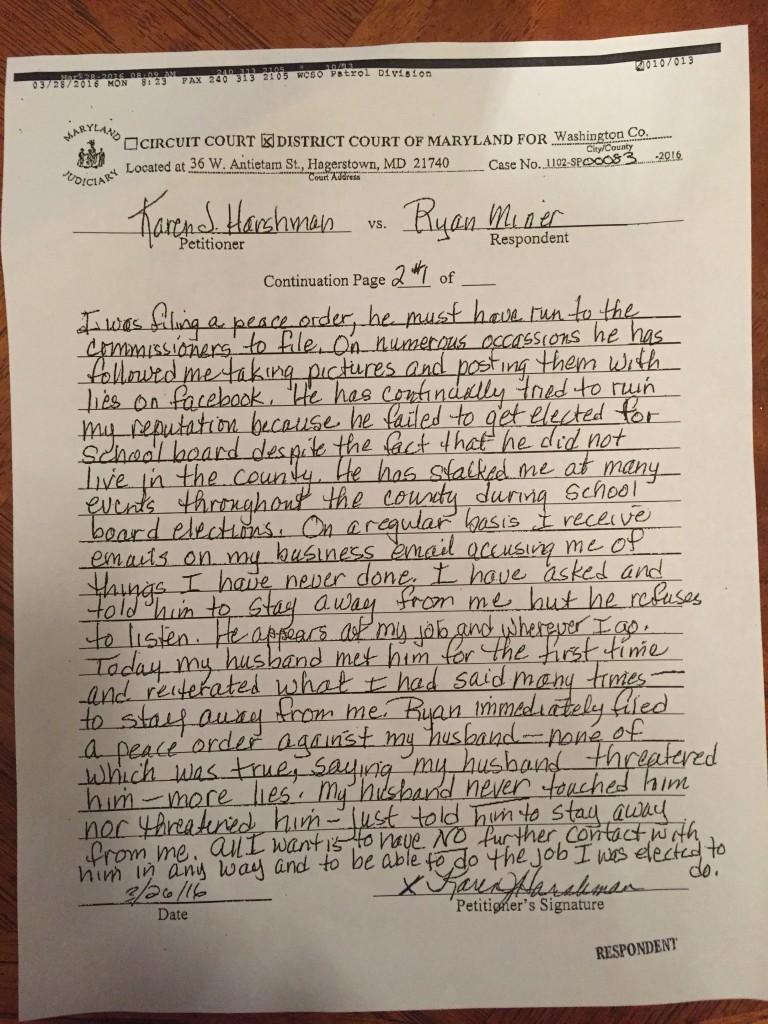 Mar-28-2016 08:09 AM 240 313 2105 10/13
03/28/2016 MON 8:23 FAX 240 313 2105 WCSO Patrol Division 010/013
MARYLAND JUDICIARY
CIRCUIT COURT DISTRICT COURT OF MARYLAND FOR Washington Co.
City/County
Located at 36 W. Antietam St., Hagerstown, MD 21740 Case No. 1102-SP00083-2016
Court Address
Karen J. Harshman vs. Ryan Miner
Petitioner Respondent
Continuation Page 2 #7 of
I was filing a peace order, he must have run to the
commissioners to file. On numerous occassions he has
followed me taking pictures and posting them with
lies on facebook. He has continually tried to ruin
my reputation because he failed to get elected for
school board despite the fact that he did not
live in the county. He has stalked me at many
events throughout the county during school
board elections. On a regular basis I receive
emails on my business email accusing me of
things I have never done. I have asked and
told him to stay away from me but he refuses
to listen. He appears at my job and wherever I go.
Today my husband met him for the first time
and reiterated what I had said many times—
to stay away from me. Ryan immediately filed
a peace order against my husband — none of
which was true, saying my husband threatered
him — more lies. My husband never touched him
nor threatened him — just told him to stay away
from me. All I want is to have NO further contact with
him in any way and to be able to do the job I was elected to
do.
3/26/16 X Karen J Harshman
Date Petitioner's Signature
RESPONDENT